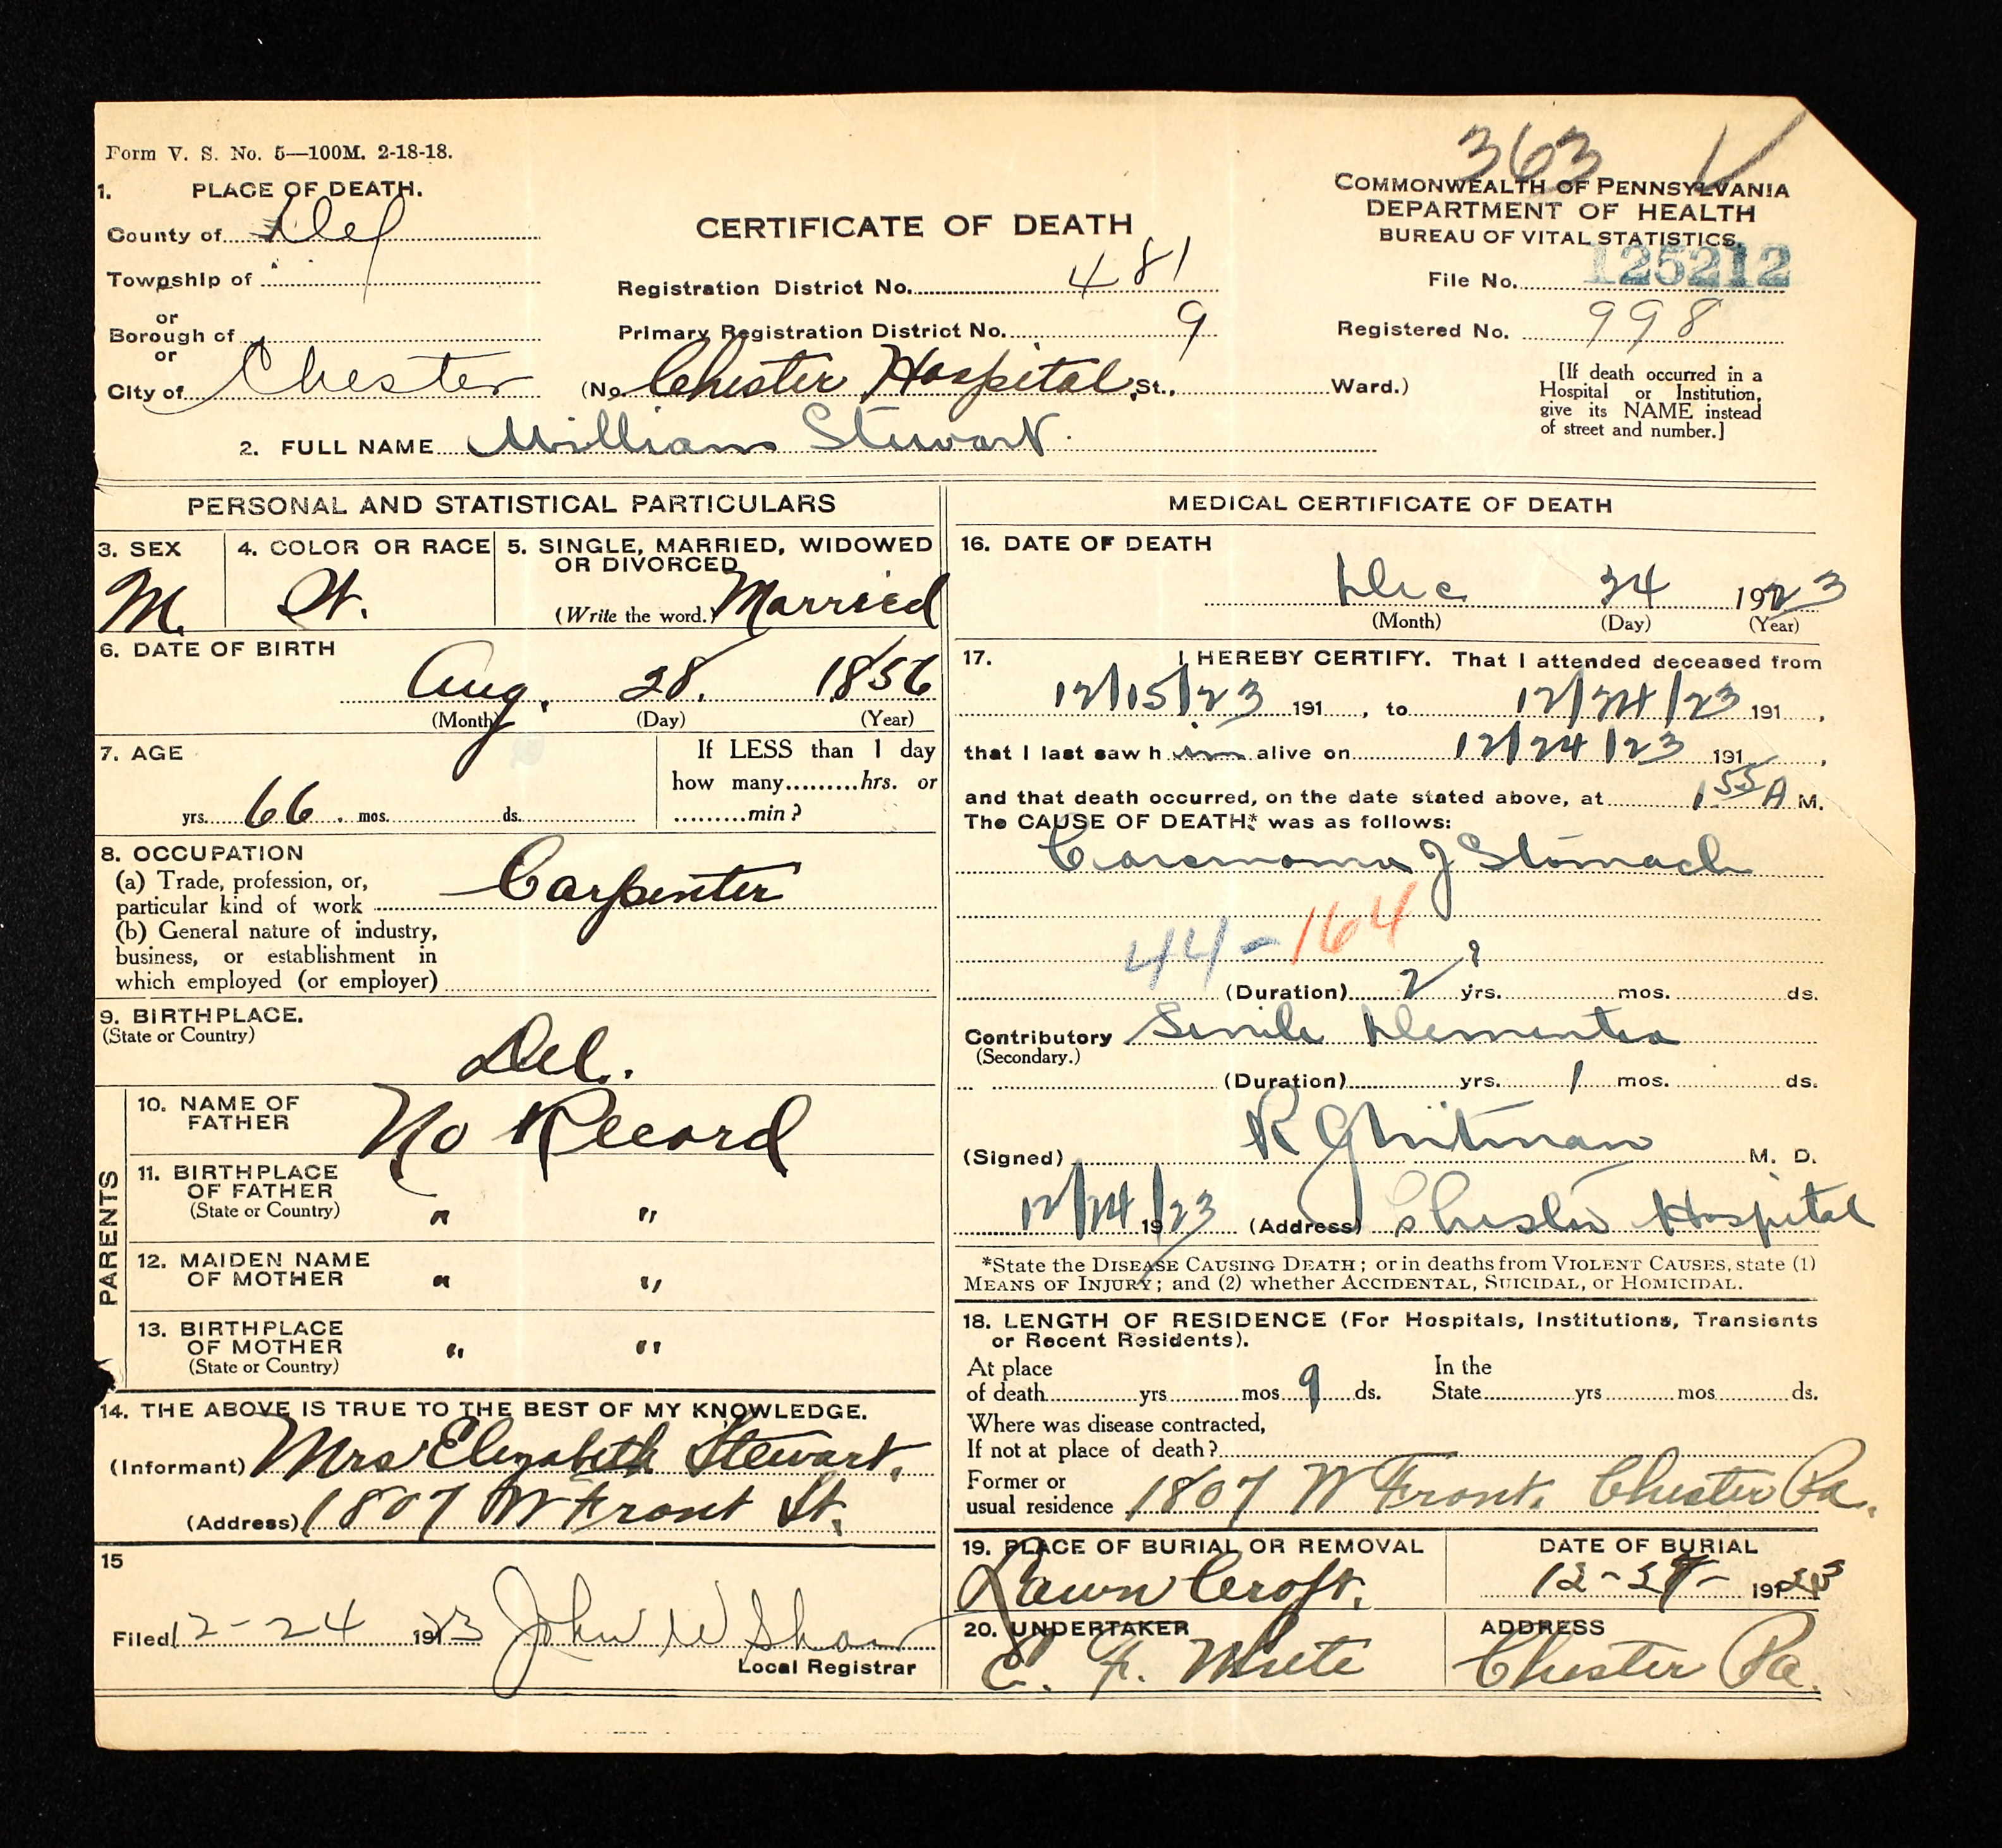 363 V
Form V. S. No. 5—100M. 2-18-18.
1. PLACE OF DEATH.
County of Del
Township of
or
Borough of
or
City of Chester
CERTIFICATE OF DEATH
Registration District No. 481
Primary Registration District No. 9
(No. Chester Hospital, St., Ward.)
COMMONWEALTH OF PENNSYLVANIA
DEPARTMENT OF HEALTH
BUREAU OF VITAL STATISTICS.
File No. 125212
Registered No. 998
[If death occurred in a
Hospital or Institution,
give its NAME instead
of street and number.]
2. FULL NAME William Stewart.
PERSONAL AND STATISTICAL PARTICULARS
3. SEX
M.
4. COLOR OR RACE
W.
5. SINGLE, MARRIED, WIDOWED
OR DIVORCED
(Write the word.) Married
6. DATE OF BIRTH
Aug. 28. 1856
(Month) (Day) (Year)
7. AGE
yrs. 66. mos. ds.
If LESS than 1 day
how many.........hrs. or
.........min?
8. OCCUPATION
(a) Trade, profession, or,
particular kind of work Carpenter
(b) General nature of industry,
business, or establishment in
which employed (or employer)
9. BIRTHPLACE.
(State or Country)
Del.
PARENTS
10. NAME OF
FATHER
No Record
11. BIRTHPLACE
OF FATHER
(State or Country) " "
12. MAIDEN NAME
OF MOTHER " "
13. BIRTHPLACE
OF MOTHER
(State or Country) " "
14. THE ABOVE IS TRUE TO THE BEST OF MY KNOWLEDGE.
(Informant) Mrs Elizabeth Stewart.
(Address) 1807 W Front St.
15
Filed 12-24 1923 John W Shaw
Local Registrar
MEDICAL CERTIFICATE OF DEATH
16. DATE OF DEATH
Dec 24 1923
(Month) (Day) (Year)
17. I HEREBY CERTIFY. That I attended deceased from
12/15/23 191 , to 12/24/23 191 ,
that I last saw h im alive on 12/24/23 191 ,
and that death occurred, on the date stated above, at 1 55 A M.
The CAUSE OF DEATH* was as follows:
Carcinoma of Stomach
44-164
?
(Duration) 2 yrs. mos. ds.
Contributory Senile Dementia
(Secondary.)
(Duration) yrs. 1 mos. ds.
(Signed) M. D.
12/24 1923 (Address) Chester Hospital
*State the DISEASE CAUSING DEATH; or in deaths from VIOLENT CAUSES, state (1)
MEANS OF INJURY; and (2) whether ACCIDENTAL, SUICIDAL, or HOMICIDAL.
18. LENGTH OF RESIDENCE (For Hospitals, Institutions, Transients
or Recent Residents).
At place
of death yrs mos 9 ds.
In the
State yrs mos ds.
Where was disease contracted,
If not at place of death?
Former or
usual residence 1807 W Front. Chester Pa.
19. PLACE OF BURIAL OR REMOVAL
Lawn Croft.
DATE OF BURIAL
1923
20. UNDERTAKER
C. F. White
ADDRESS
Chester Pa.